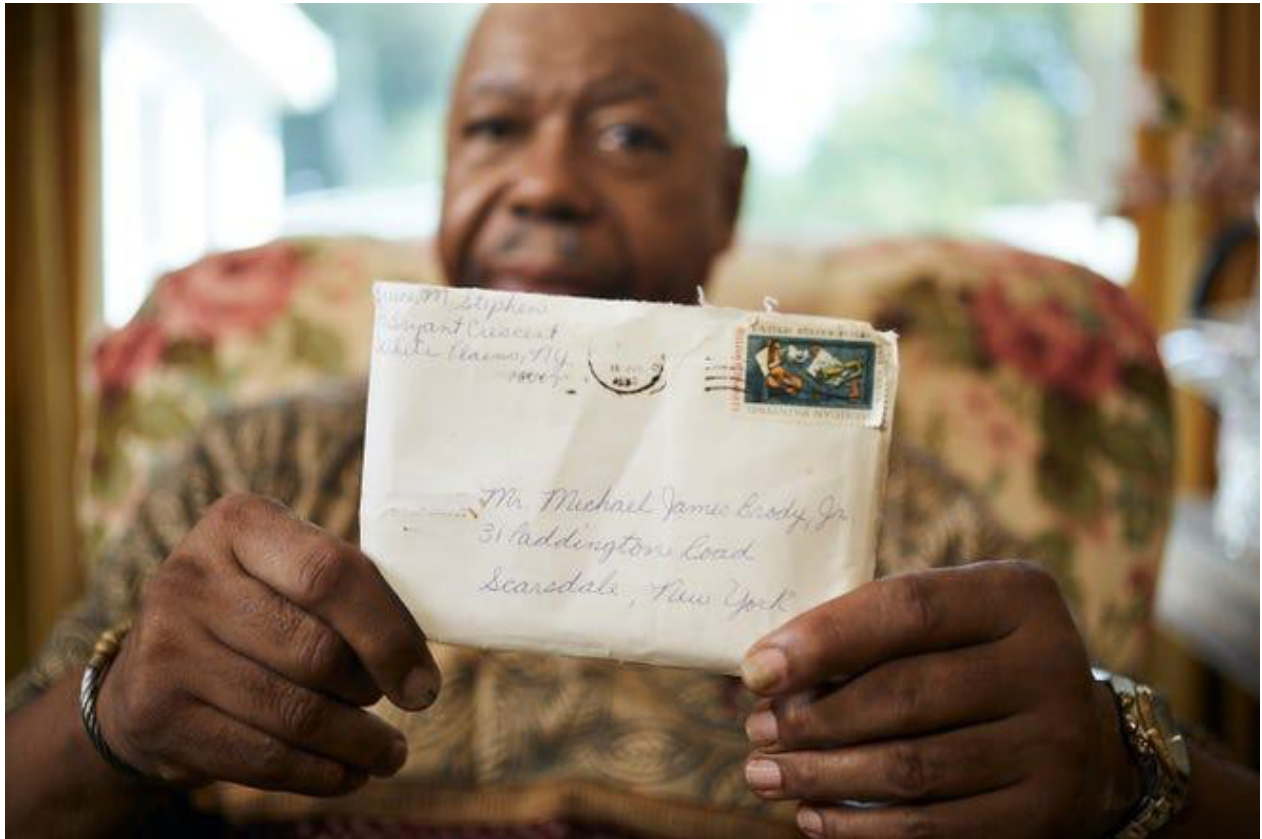 M. Stephens
Bryant Crescent
White Plains, N.Y.
UNITED STATES
Mr. Michael James Brody, Jr.
31 Paddington Road
Scarsdale, New York
AMERICAN PAINTING